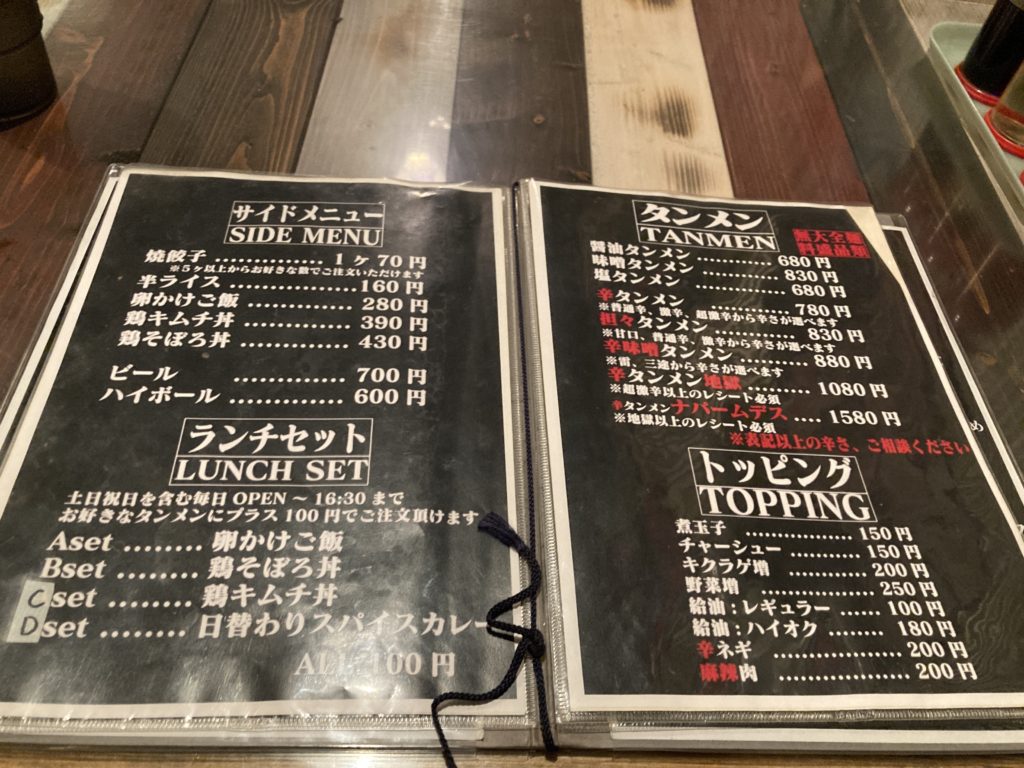 サイドメニュー
SIDE MENU
焼餃子 .............. 1ヶ70円
※5ヶ以上からお好きな数でご注文いただけます
半ライス .................. 160円
卵かけご飯 .............. 280円
鶏キムチ丼 .............. 390円
鶏そぼろ丼 .............. 430円
ビール .............. 700円
ハイボール .............. 600円
ランチセット
LUNCH SET
土日祝日を含む毎日 OPEN ～ 16:30 まで
お好きなタンメンにプラス100円でご注文頂けます
Aset ........ 卵かけご飯
Bset ........ 鶏そぼろ丼
Cset ........ 鶏キムチ丼
Dset ........ 日替わりスパイスカレー
ALL 100円
タンメン
TANMEN
無大全麺
料盛品類
醤油タンメン .............. 680円
味噌タンメン .............. 830円
塩タンメン .............. 680円
辛タンメン .............. 780円
※普通辛、激辛、超激辛から辛さが選べます
担々タンメン .............. 830円
※甘口、普通辛、激辛から辛さが選べます
辛味噌タンメン .......... 880円
※雷、三途から辛さが選べます
辛タンメン地獄 .......... 1080円
※超激辛以上のレシート必須
辛タンメンナパームデス .... 1580円
※地獄以上のレシート必須
※表記以上の辛さ、ご相談ください
トッピング
TOPPING
煮玉子 .................. 150円
チャーシュー .............. 150円
キクラゲ増 .............. 200円
野菜増 .................. 250円
給油：レギュラー ...... 100円
給油：ハイオク ........ 180円
辛ネギ .................. 200円
麻辣肉 .................. 200円
め